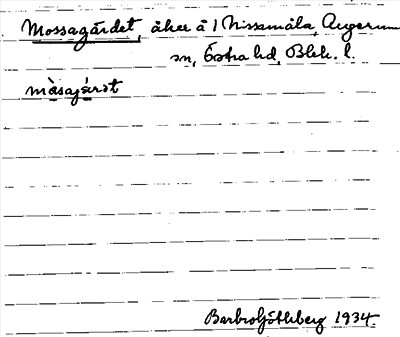 Mossagärdet, åker å 1 Nissamåla, Augerum
sn, Östra hd, Blek. l.
måsajárət
Barbro Götlberg 1934.